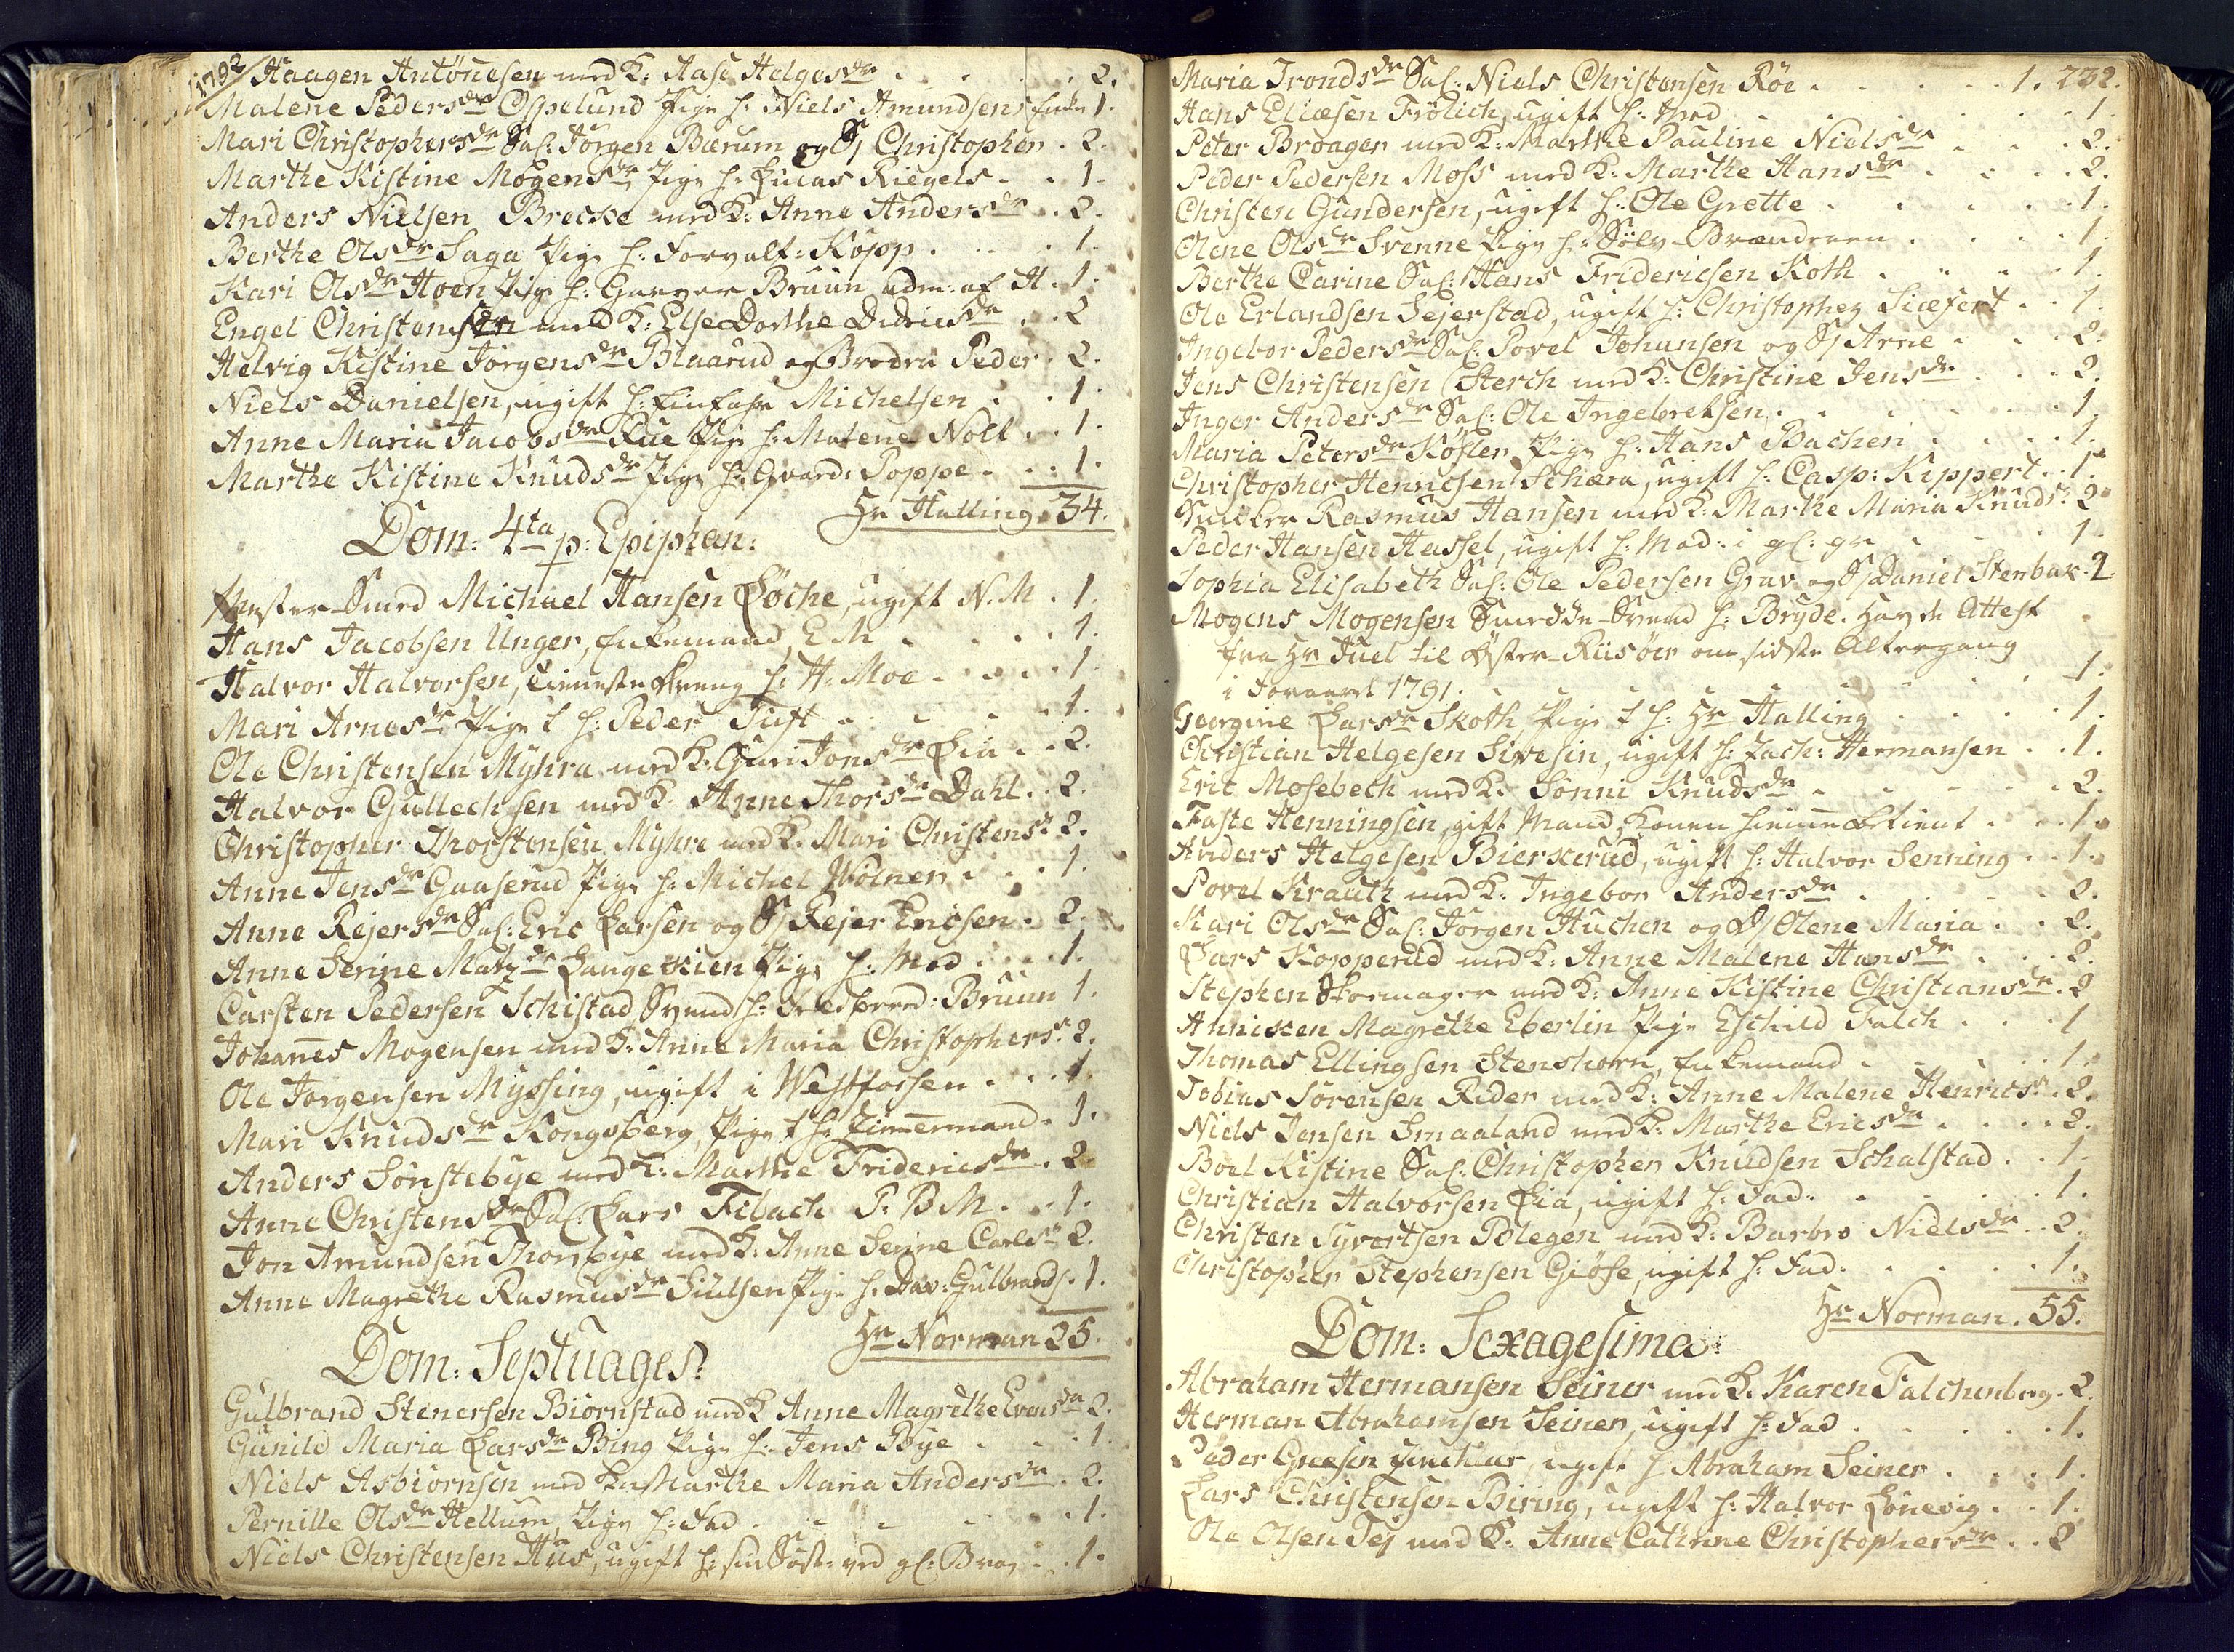 1792 Haagen Antönesen med K: Aase Helgesdr . . . . 2.
Malene Pedersdr Ospelund Pige h: Niels Amundsens Enke 1.
Mari Christophersdr Sal: Jörgen Bærum og S/ Christopher . 2.
Marthe Kistine Mogensdr Pige h: Lucas Riegels . . 1.
Anders Nielsen Brecke med K: Anne Andersdr . . 2.
Berthe Olsdr Saga Pige h: Forvalt: Kopp . . . . 1.
Kari Olsdr Hoen Pige h: Garver Bruun adm: af H . 1.
Engel Christensen med K: Else Dorthe Didricsdr . . 2
Helvig Kistine Jörgensdr Blaarud og Broder Peder . 2.
Niels Danielsen, ugift h: Michelsen . . 1.
Anne Maria Jacobsdr Rue Pige h: Malene Noll . . 1.
Marthe Kistine Knudsdr Pige h: Gvard: Poppe . . . 1.
Hr Halling. 34.
Dom: 4ta p: Epiphan:
Mester-Smed Michael Hansen Löche, ugift N. M . 1.
Hans Jacobsen Unger, Enkemand, E M . . . . 1.
Halvor Halvorsen, tieneste Dreng h: H. Moe . . . . 1.
Mari Arnesdr Pige t h: Peder Tuft . . . . 1.
Ole Christensen Myhra med K: Guri Jonsdr Lia . . 2.
Halvor Gullechsen med K. Anne Thorsdr Dahl . . 2.
Christopher Thorstensen Myhre med K. Mari Christensdr 2.
Anne Jensdr Gaaserud Pige h: Michel Wölner . . . 1.
Anne Rejersdr Sal: Eric Larsen og S/ Rejer Ericsen . 2.
Anne Serine Matzdr Langekien Pige h: Mod . . . 1.
Carsten Pedersen Schistad Svend h: Bruun 1.
Johannes Mogensen med K: Anne Maria Christophersdr 2.
Ole Jorgensen Myssing, ugift i Westfossen . . . 1.
Mari Knudsdr Kongsberg, Pige t h: Zimmermand . 1.
Anders Sönstebye med K: Marthe Fridericsdr . 2
Anne Christensdr Sal: Lars Filbach P. B M . . 1.
Jon Amundsen Thorsbye med K: Anne Serine Carlsdr 2.
Anne Magrethe Rasmusdr Siulsen Pige h: Dav: Gulbrands . 1.
Hr Norman 25.
Dom: Septuages:
Gulbrand Stenersen Biornstad med K Anne Magrethe Evensdr 2.
Gunild Maria Larsdr Bing Pige h: Jens Bye . . . 1
Niels Asbiornsen med K Marthe Maria Andersdr . 2.
Pernille Olsdr Hellum, Pige h: Fad . . . . . 1.
Niels Christensen Hüs, ugift h: sin Söst: ved gl: Broe . . 1.
Maria Trondsdr Sal: Niels Christensen Röe . . . . . 1. 232.
Hans Eliæsen Frölich, ugift h: Mod . . . . . 1.
Peter Broager med K: Marthe Pauline Nielsdr . . . 2.
Peder Pedersen Moss med K: Marthe Hansdr . . . . 2.
Christen Gundersen, ugift h: Ole Grette . . . . . 1.
Olene Olsdr Svenne Pige h: Sölv-Brænderen . . . . 1.
Berthe Carine Sal: Hans Fridericsen Koth . . . . 1.
Ole Erlandsen Sejerstad, ugift h: Christopher Siefert . . 1.
Ingebor Pedersdr Sal: Povel Johansen og S/ Arne . . . 2.
Jens Christensen Sterch med K: Christine Jensdr . . . 2.
Inger Andersdr Sal: Ole Ingebretsen . . . . . . 1.
Maria Petersdr Kosler, Pige h: Hans Bachen . . . . 1.
Christopher Henricsen Schæra, ugift h: Casp: Kippert . . 1.
Snitter Rasmus Hansen med K: Marthe Maria Knuds: 2
Peder Hansen Hassel, ugift h: Mod: i gl: gr . . . . 1.
Sophia Elisabeth Sal: Ole Pedersen Grav og S/ Daniel Stenbak . 2
Mogens Mogensen Smedde-Svend h: Bryde. Havde Attest
fra Hr Juel til Öster-Riisöer om sidste Altergang
i Foraaret 1791. . . . . . . 1.
Georgine Larsdr Skoth Pige t h: Hr Halling . . . . 1.
Christian Helgesen Sivesin, ugift h: Zach: Hermansen . . 1.
Eric Mosebech med K: Sonni Knudsdr . . . . . 2.
Faste Henningsen, gift Mand, Konen hiemme . . . 1.
Anders Helgesen Bierkerud, ugift h: Halvor Senning . . 1.
Povel Krauth med K: Ingebor Andersdr . . . . . 2.
Kari Olsdr Sal: Jörgen Huchen og D/ Olene Maria . . 2.
Lars Kopperud med K: Anne Malene Hansdr . . . 2.
Stephen Skomager med K: Anne Kistine Christiansdr . 2
Anniken Magrethe Eberlin Pige Eschild Falch . . . 1
Thomas Ellingsen Stenshorn, Enkemand . . . . . 1.
Tobias Sörensen Rider med K: Anne Malene Henrics: . 2.
Niels Jensen Smaaland med K: Marthe Ericsdr . . . . 2.
Boel Kistine Sal: Christopher Knudsen Schalstad . . 1.
Christian Halvorsen Lia, ugift h: Fad: . . . . . 1.
Christen Syvertsen Polegen med K: Barbro Nielsdr . . 2.
Christopher Stephensen Giöse, ugift h: Fad. . . . . 1.
Hr Norman. 55.
Dom: Sexagesima:
Abraham Hermansen Seiner med K. Karen Falchenberg . 2.
Herman Abrahamsen Seiner, ugift h: Fad . . . . . 1.
Peder ugift h Abraham Seiner . . . 1.
Lars Christensen Biring, ugift h: Halvor Lönevig . . 1.
Ole Olsen Tej med K: Anne Cathrine Christophersdr . . 2